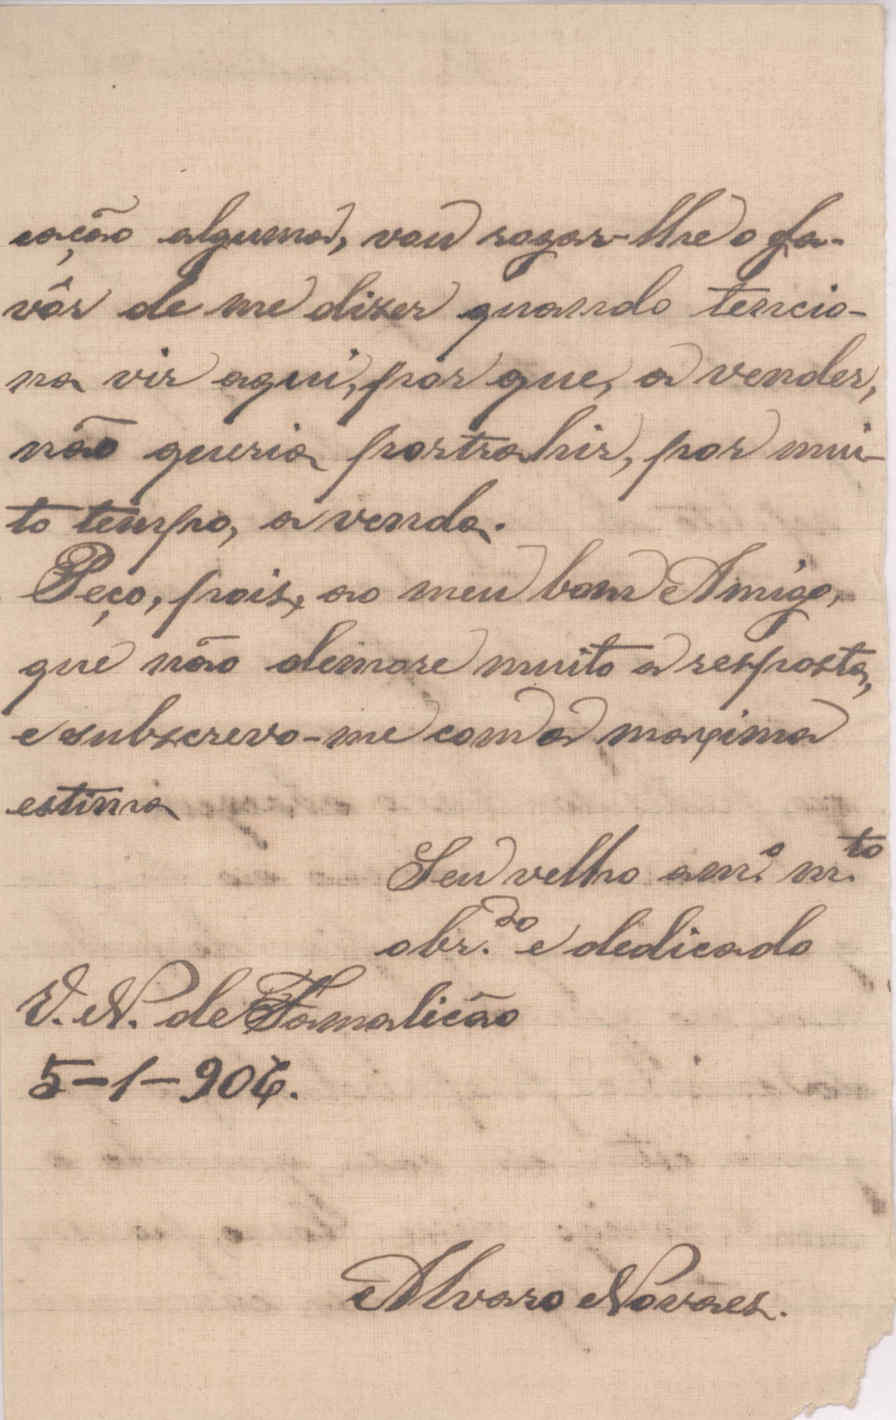 cação alguma, vou rogar-lhe o fa-
vôr de me dizer quando tencio-
na vir aqui, por que, a vender,
não queria portrahir, por mui-
to tempo, a venda.
Peço, pois, ao meu bom Amigo,
que não demore muito a resposta,
e subscrevo-me com a maxima
estima
Seu velho am.º m.to
obr.do e dedicado
V. N. de Famalicão
5-1-906.
Alvaro Novães.